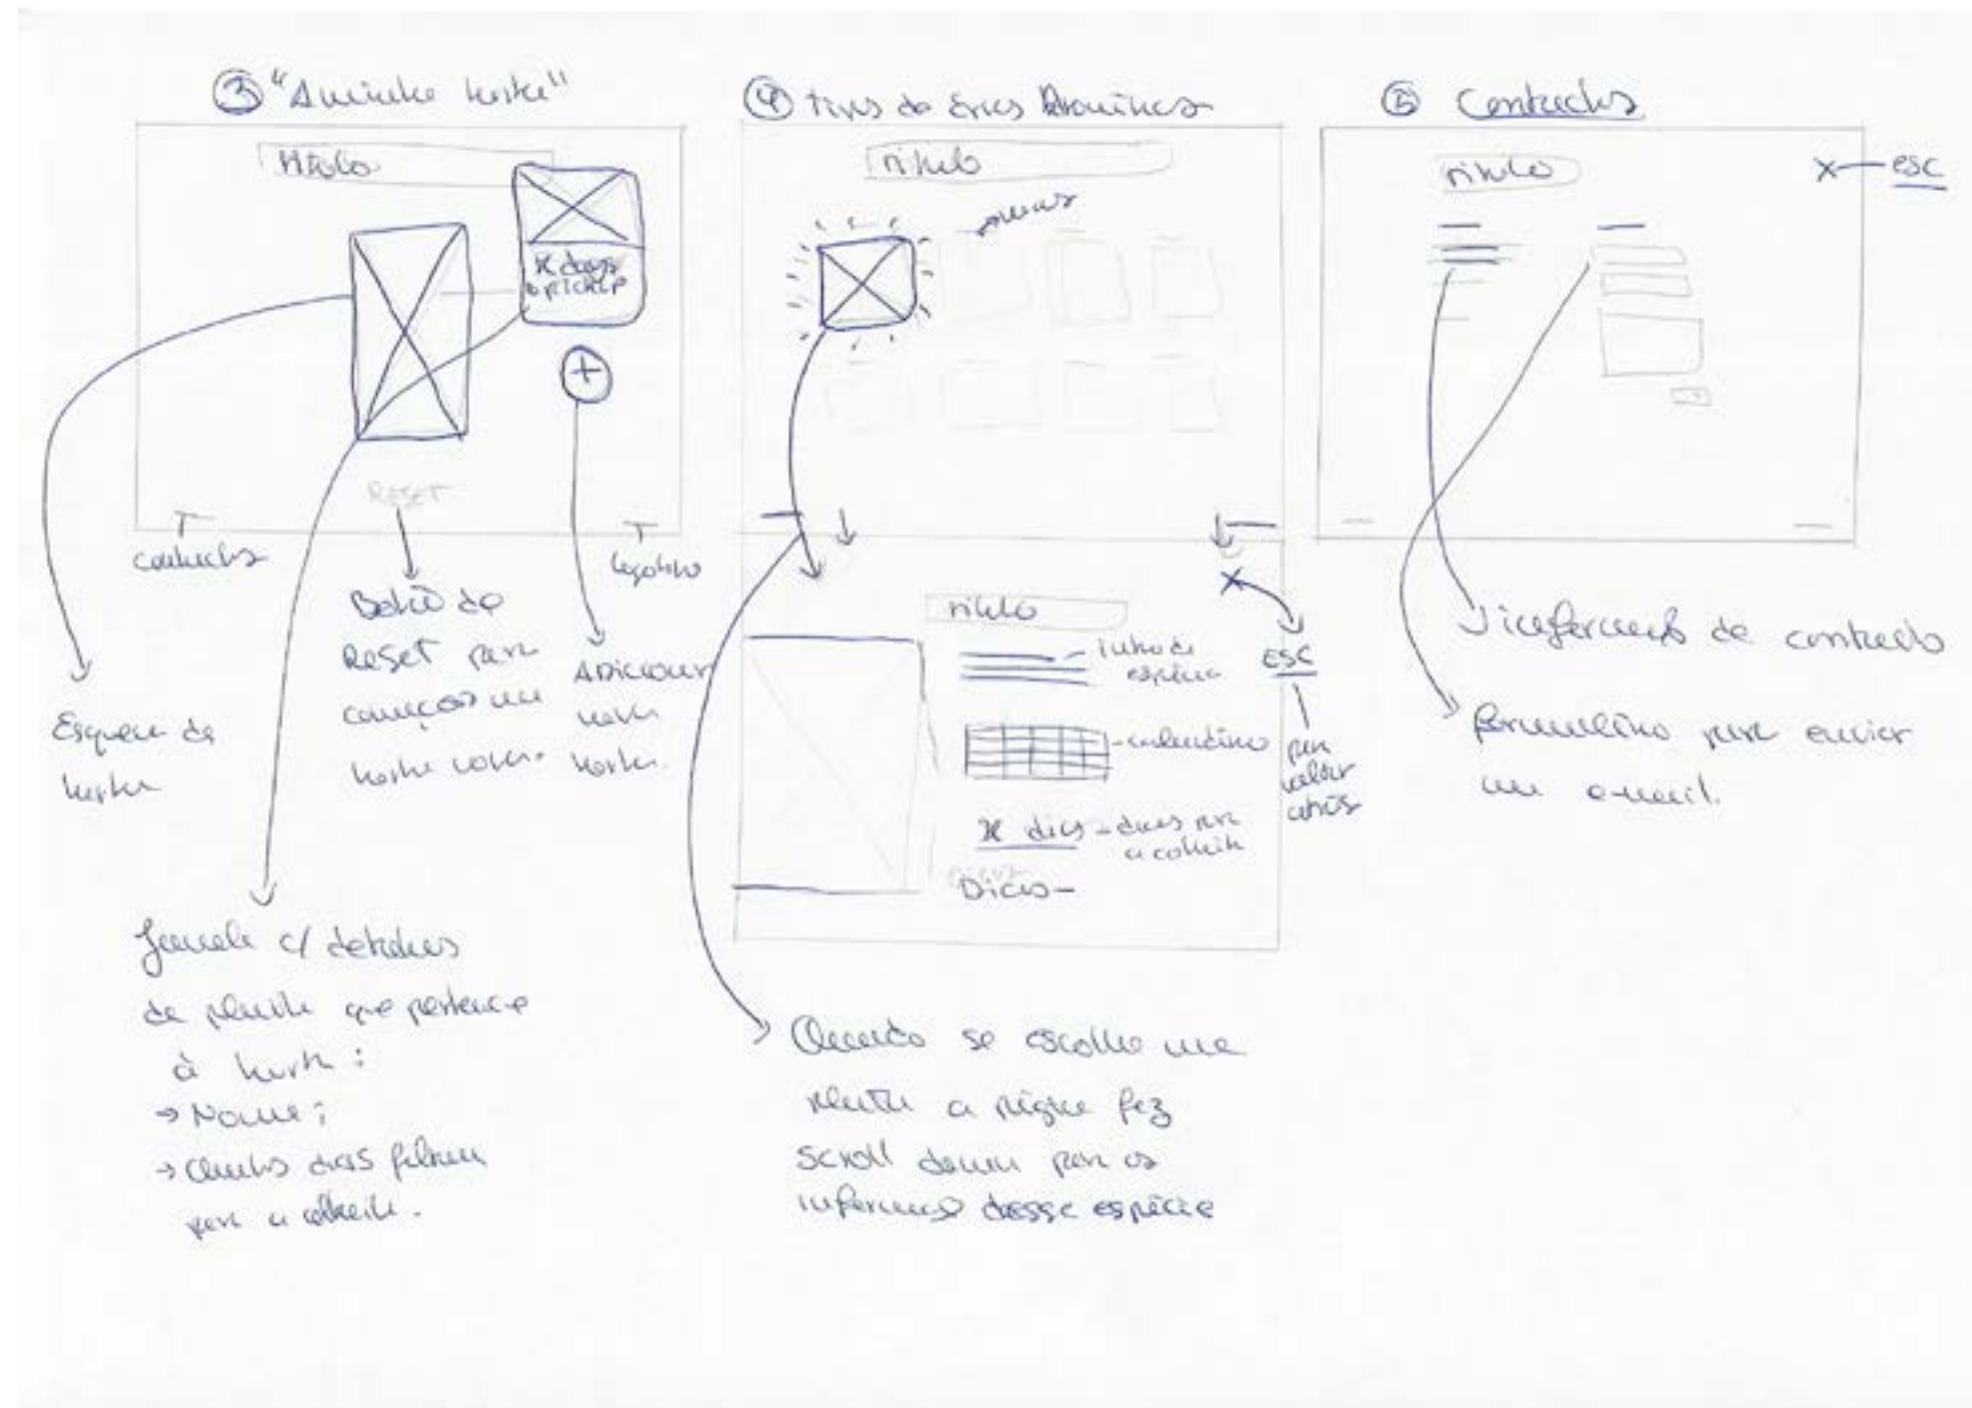 ③ "A minha horta"
título
x days
to pickup
RESET
contactos
logotipo
Esquema da
horta
Botão de
Reset para
começar uma
horta nova.
Adicionar
nova
horta.
Janela c/ detalhes
da planta que pertence
à horta:
→ Nome;
→ Quantos dias faltam
para a colheita.
④ Tipos de Ervas Aromáticas
título
título
intro da
espécie
- calendário
x dias - dias para
a colheita
Dicas -
ESC
para
voltar
atrás
Quando se escolhe uma
planta a página faz
scroll down para as
informações dessa espécie
⑤ Contactos
título
esc
informações de contacto
formulário para enviar
um e-mail.